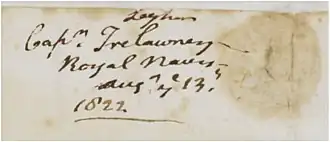 Leghorn
Capn. Trelawney
Royal Navy
Augt. ye 13th
1822